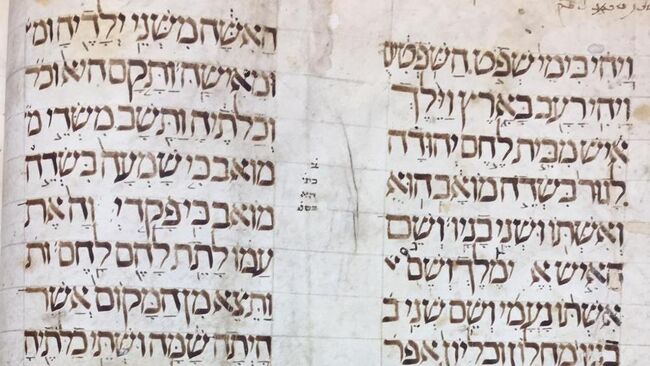 ויהי בימי שפט השפטי
ויהי רעב בארץ וילך
איש מבית לחם יהודה
לגור בשדה מואב הוא
ואשתו ושני בניו ושם
האיש א ימלך ושם
אשתו נעמי ושם שני ב
בניו מחלון וכליון אפר
האשה משני ילדיה ומ
ומאישה ותקם היא וכל
וכלתיה ותשב משדי מ
מואב כי שמעה בשדה
מואב כי פקד יי את
עמו לתת להם לחם ות
ותצא מן המקום אשר
היתה שמה ושתי כלתיה